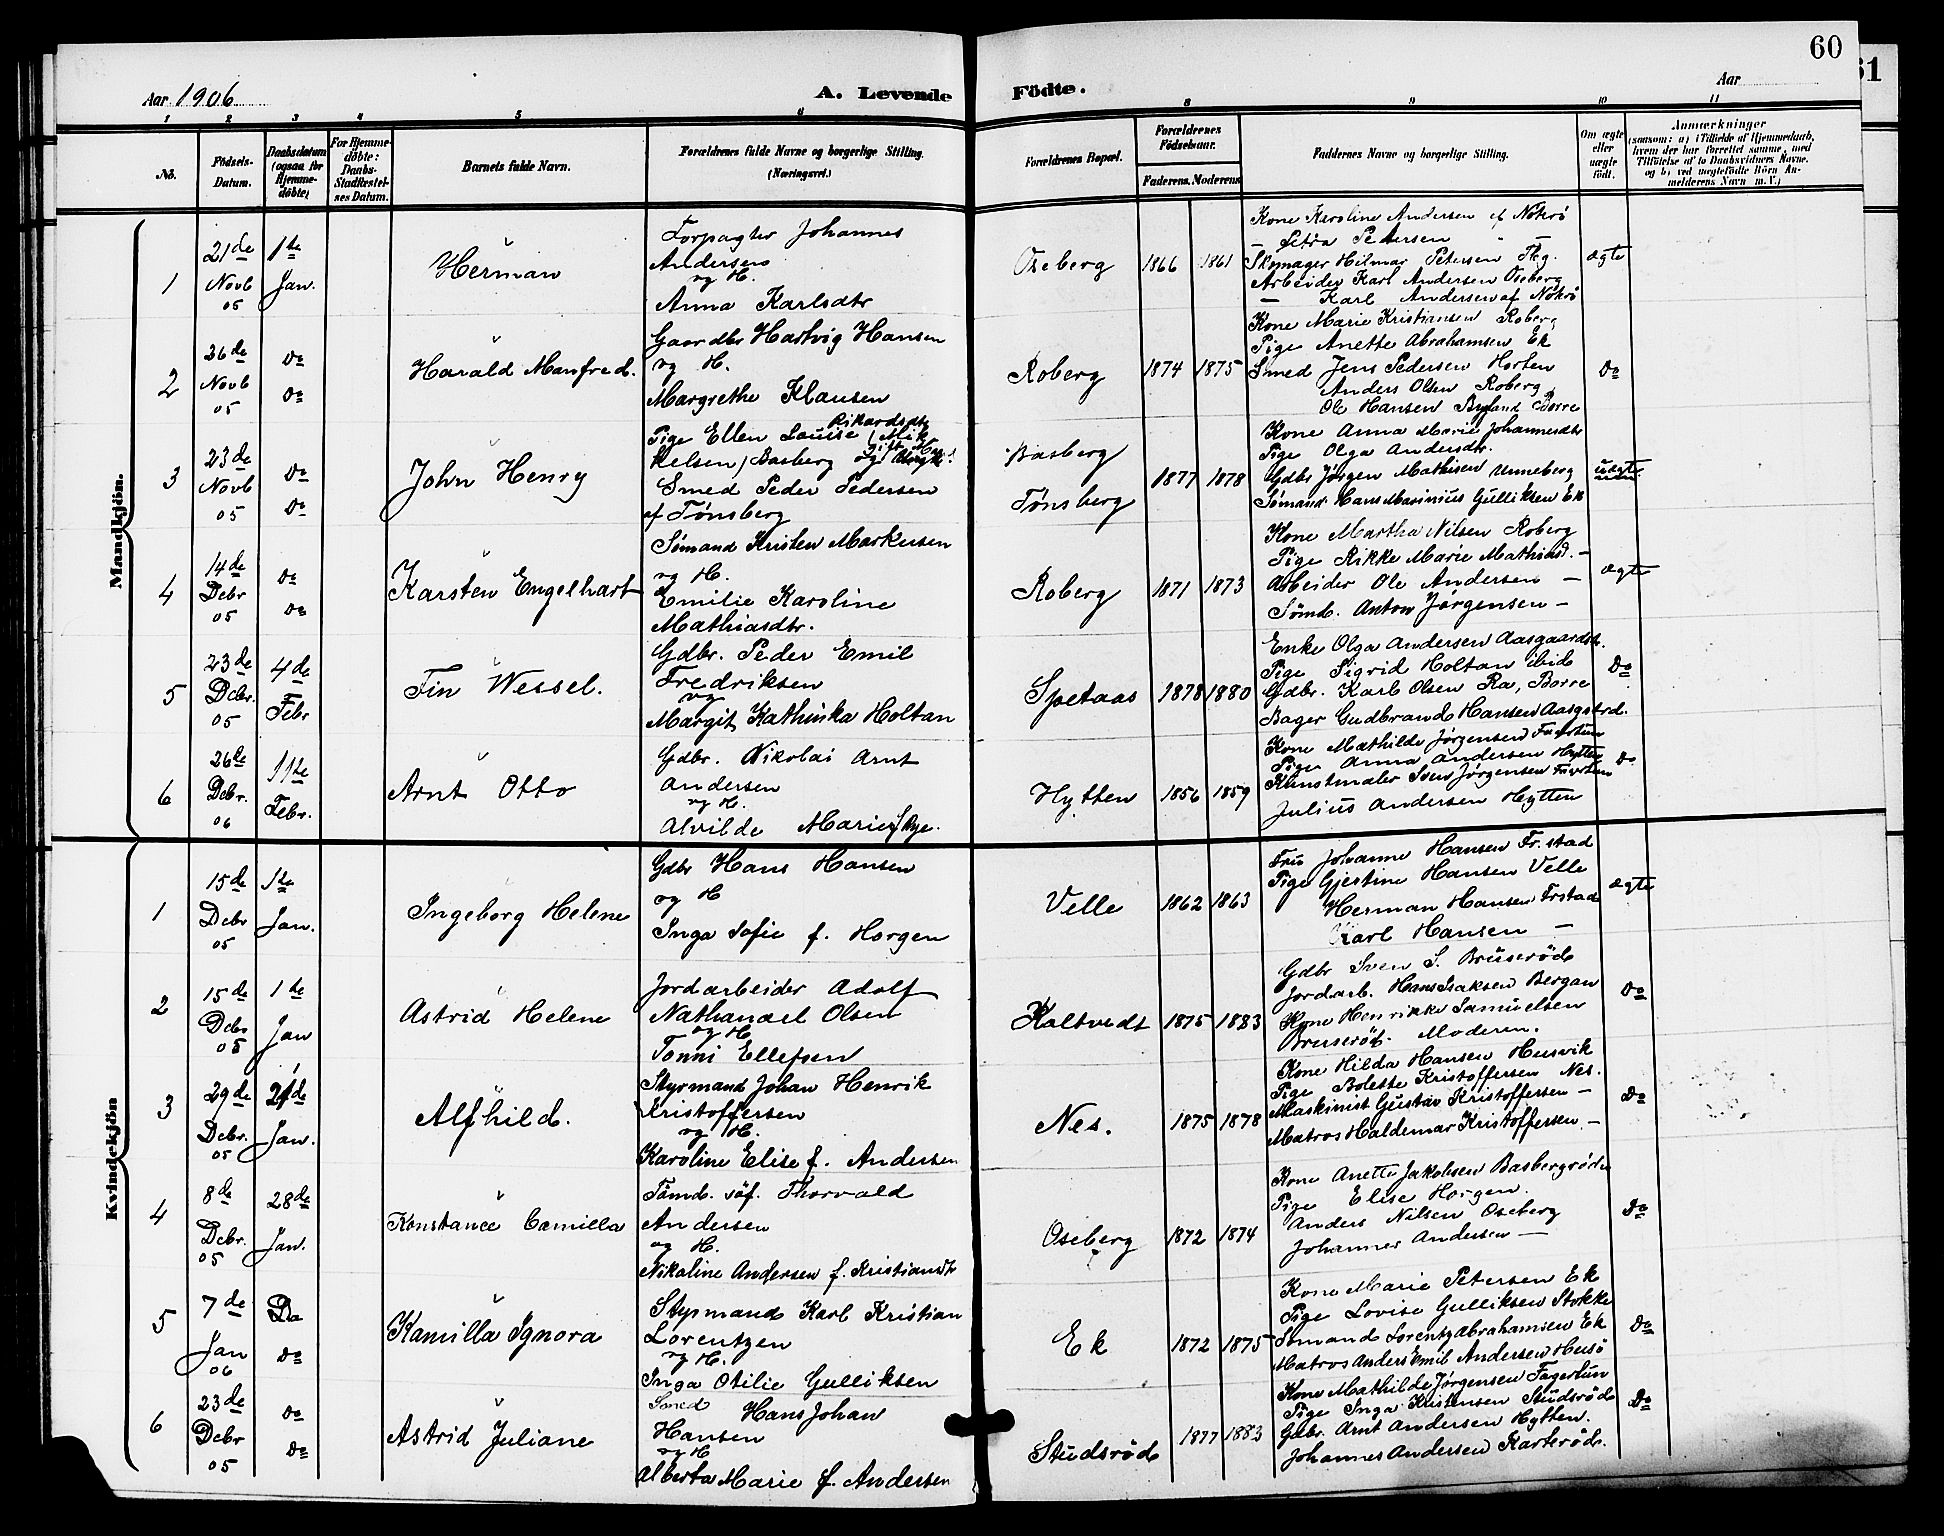 60
61
Aar 1906
A. Levende
Födte.
Aar
1 2 3 4 5 6 8 9 10 11
No.
Födsels-Datum.
Daabsdatum (ogsaa for Hjemmedöbte)
For Hjemmedöbte: Daabs-Stadfestelses Datum.
Barnets fulde Navn.
Forældrenes fulde Navne og borgerlige Stilling. (Næringsvei.)
Forældrenes Bopæl.
Forældrenes Födselsaar.
Faderens. Moderens
Faddernes Navne og borgerlige Stilling.
Om ægte eller uægte födt.
Anmærkninger
(saasom: a) i Tilfælde af Hjemmedaab, hvem der har forrettet samme, med Tilföielse af to Daabsvidners Navne. og b) ved uægtefödte Börn Anmelderens Navn m. V.)
Mandkjön.
1
21de Novb 05
1te Jan.
Herman
Forpagter Johannes
Andersen
og H.
Anna Karlsdtr
Oseberg
1866 1861
Kone Karoline Andersen af Nøtrø
— Petra Petersen —
Skomager Hilmar Petersen Tbg.
Arbeider Karl Andersen Oseberg
— Karl Andersen af Nøtrø
ægte
2
26de Novb 05
Do Do
Harald Manfred.
Gaardbr Hartvig Hansen
og H.
Margrethe Klausen
Roberg
1874 1875
Kone Marie Kristiansen Roberg
Pige Anette Abrahamsen Ek
Smed Jens Pedersen Horten
Anders Olsen Roberg
Ole Hansen Byland Borre
Do
3
23de Novb 05
Do Do
John Henry
Rikardsdtr
Pige Ellen Louise (Mik
kelsen) Basberg og
Smed Peder Pedersen
af Tønsberg
Basberg
Tønsberg
1877 1878
Kone Anna Marie Johannesdtr
Pige Olga Andersdtr.
Gdbr Jørgen Mathisen Unneberg
Sømand Hans Marinius Gulliksen Ek
uægte
4
14de Debr 05
Do Do
Karsten Engelhart
Sømand Kristen Markusen
og H.
Emilie Karoline
Mathiasdtr.
Roberg
1871 1873
Kone Martha Nilsen Roberg
Pige Rikke Marie Mathiasd. —
Arbeider Ole Andersen —
Sømd. Anton Jørgensen —
ægte
5
23de Debr. 05
4de Febr
Fin Wessel.
Gdbr. Peder Emil
Fredriksen
og
Margit Kathinka Holtan
Spetaas
1878 1880
Enke Olga Andersen Aasgaardstr.
Pige Sigrid Holtan ibid
Gdbr. Karl Olsen Ra, Borre
Bager Gudbrand Hansen Aasgstrd.
Do
6
26de Debr. 06
11te Febr.
Arnt Otto
Gdbr. Nikolai Arnt
Andersen
og H.
Alvilde Marie f Rye.
Hytten
1856 1859
Kone Mathilde Jørgensen Fagertun
Pige Anna Andersen Hytten
Kunstmaler Sven Jørgensen Fagertun
Julius Andersen Hytten
Do
Kvindekjön
1
15de Debr 05
1te Jan.
Ingeborg Helene
Gdbr Hans Hansen
og H
Inga Sofie f. Horgen
Velle
1862 1863
Fru Johanne Hansen Fr.stad
Pige Gjestine Hansen Velle
Herman Hansen Frstad
Karl Hansen —
ægte
2
15de Debr 05
1te Jan
Astrid Helene
Jordarbeider Adolf
Nathanael Olsen
og H
Tonni Ellefsen
Kaltvedt
1875 1883
Gdbr Sven S. Bruserød
Jordarb. Hans Isaksen Bergan
Kone Henrikke Samuelsen
Bruserød. Moderen.
Do
3
29de Debr. 05
21de Jan.
Alfhild.
Styrmand Johan Henrik
Kristoffersen
og H.
Karoline Elise f. Andersen
Nes.
1875 1878
Kone Hilda Hansen Husvik
Pige Bolette Kristoffersen Nes.
Maskinist Gustav Kristoffersen —
Matros Haldemar Kristoffersen —
Do
4
8de Debr. 05
28de Jan.
Konstance Camilla
Tømd. Søf. Thorvald
Andersen
og H.
Nikoline Andersen f. Kristiansdtr
Oseberg
1872 1874
Kone Anette Jakobsen Basbergrød
Pige Elise Horgen.
Anders Nilsen Oseberg
Johannes Andersen —
Do
5
7de Jan 06
Do Do
Kamilla Ignora
Styrmand Karl Kristian
Lorentzen
og H.
Inga Otilie Gulliksen
Ek
1872 1875
Kone Marie Petersen Ek
Pige Lovise Gulliksen Stokke
Sømand Lorentz Abrahamsen Ek
Matros Anders Emil Andersen Husø
Do
6
23de Debr 05
Do Do
Astrid Juliane
Smed Hans Johan
Hansen
og H
Alberta Marie f. Andersen
Studsrød
1877 1883
Kone Mathilde Jørgensen Fagertun
Pige Inga Kristensen Studsrød
Gdbr. Arnt Andersen Hytten.
Johannes Andersen Karterød.
Do